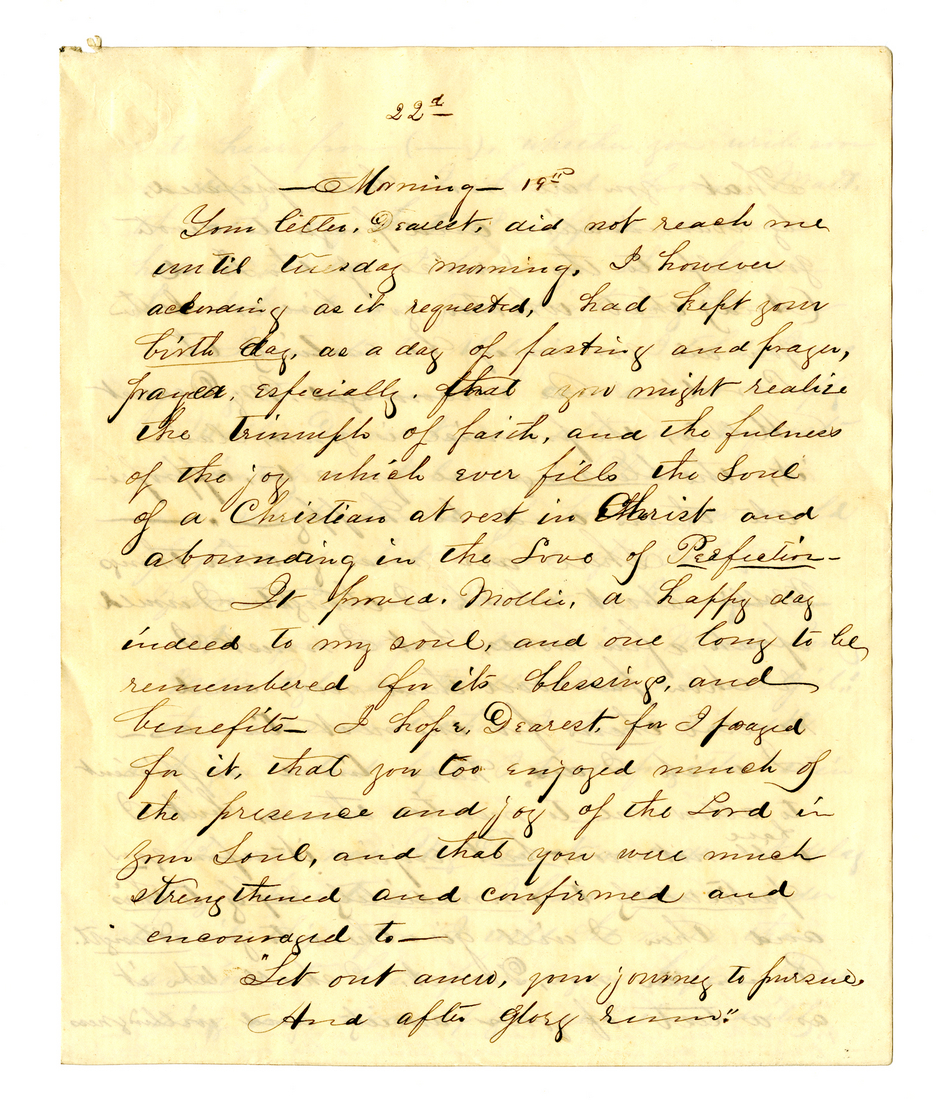 22d
— Morning — 19th
Your letter, Dearest, did not reach me
until tuesday morning. I however
according as it requested, had kept your
birth day, as a day of fasting and prayer,
prayed, especially, that you might realize
the triumph of faith, and the fulness
of the joy which ever fills the Soul
of a Christian at rest in Christ and
abounding in the Love of Perfection —
It proved, Mollie, a happy day
indeed to my soul, and one long to be
remembered for its blessings, and
benefits — I hope, Dearest, for I prayed
for it, that you too enjoyed much of
the presence and joy of the Lord in
your Soul, and that you were much
strengthened and confirmed and
encouraged to —
"Set out anew, your journey to pursue,
And after glory run".